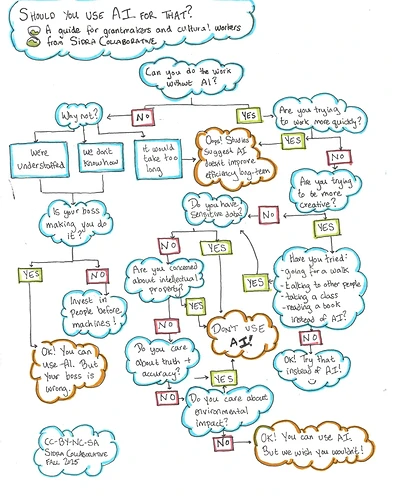 SHOULD YOU USE AI FOR THAT?
A guide for grantmakers and cultural workers
from SIDRA COLLABORATIVE
Can you do the work
without AI?
Why not?
NO
YES
Are you trying
to work more quickly?
We're
understaffed
we don't
know how
it would
take too
long
Oops! Studies
suggest AI
doesn't improve
efficiency long-term
YES
NO
Are you trying
to be more
creative?
Is your boss
making you do
it?
Do you have
Sensitive data?
NO
YES
NO
YES
Have you tried:
-going for a walk
-talking to other people
-taking a class
-reading a book
instead of AI?
YES
NO
Are you concerned
about intellectual
property?
YES
YES
Invest in
people before
machines!
NO
DON'T USE
AI!
NO
OK! You can
use AI. But
your boss is
wrong.
Do you care
about truth +
accuracy?
OK! Try that
instead of AI!
YES
NO
Do you care about
environmental
impact?
CC-BY-NC-SA
SIDRA COLLABORATIVE
FALL 2025
NO
OK! You can use AI.
But we wish you wouldn't!